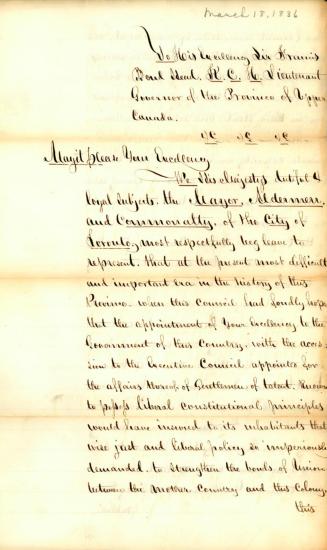 March 18, 1836
To His Excellency Sir Francis
Bond Head, K. C. H. Lieutenant
Governor of the Province of Upper
Canada.
&c &c &c
May it please Your Excellency
We His Majesty's dutiful &
loyal Subjects the Mayor, Aldermen,
and Commonalty, of the City of
Toronto, most respectfully beg leave to
represent. that at the present most difficult
and important era in the history of this
Province- when this Council had fondly hoped
that the appointment of Your Excellency to the
Government of this Country, with the acces-
sion to the Executive Council appointed for
the affairs thereof of Gentlemen of talent, known
to possess liberal constitutional principles
would have insured to its inhabitants that
wise just and liberal policy so imperiously
demanded to strengthen the bonds of Union
between the Mother Country and this Colony
this